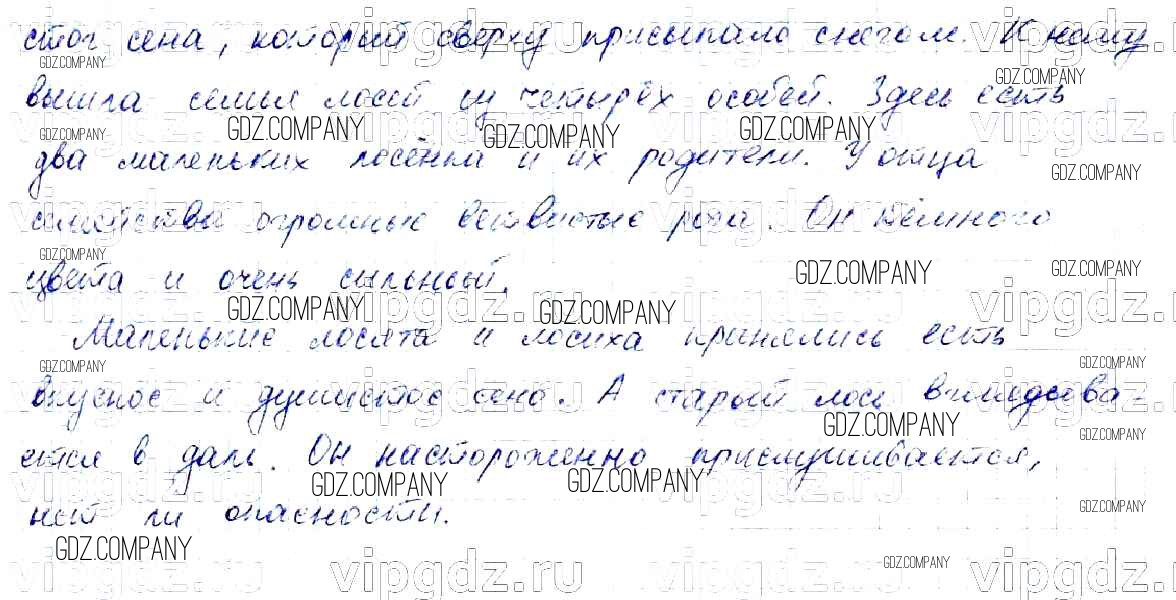 стог сена, который сверху присыпало снегом. К нему
вышла семья лосей из четырёх особей. Здесь есть
два маленьких лосёнка и их родители. У отца
семейства огромные ветвистые рога. Он тёмного
цвета и очень сильный.
Маленькие лосята и лосиха принялись есть
вкусное и душистое сено. А старый лось вглядыва-
ется в даль. Он настороженно прислушивается,
нет ли опасности.
GDZ.COMPANY
vipgdz.ru